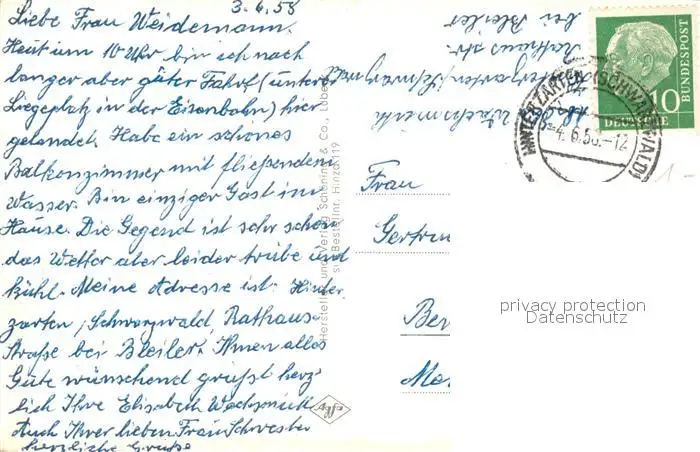 3.6.58
Liebe Frau Weidemann.
Heut um 10 Uhr bin ich nach
langer aber guter Fahrt (unterer
Liegeplatz in der Eisenbahn) hier
gelandet. Habe ein schönes
Balkonzimmer mit fließendem
Wasser. Bin einziger Gast im
Hause. Die Gegend ist sehr schön
das Wetter aber leider trübe und
kühl. Meine Adresse ist: Hinter
zarten / Schwarzwald, Rathaus
Straße bei Bleiler. Ihnen alles
Gute wünschend grüßt herz
lich Ihre Elisabeth Wachsmuth
Auch Ihrer lieben Frau Schwester
herzliche Grüße
Abs. Wachsmuth
Hinterzarten/Schwarzwald
Rathaus str.
bei Bleiler
Hersteller und Verlag Schöning & Co., Lübeck
Bestellnr. Hinza 119
Agfa
DEUTSCHE BUNDESPOST
10
HINTERZARTEN (SCHWARZWALD)
-4.6.58.-12
1.-
Frau
Gertru
Ber
privacy protection
Datenschutz